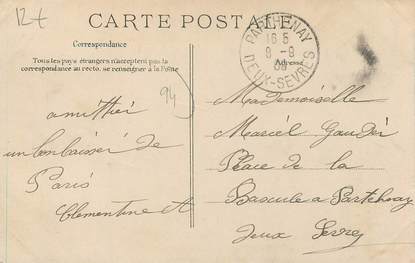 12€
CARTE POSTALE
Correspondance
Tous les pays étrangers n'acceptent pas la
correspondance au recto, se renseigner à la Poste
Adresse
PARTHENAY
16 5
9
DEUX-SEVRES
94
amitiér
un bon baiser de
Paris
Clementine A
Mademoiselle
Mariel
Place de la
Bascule a Partehnay
Deux Sevres